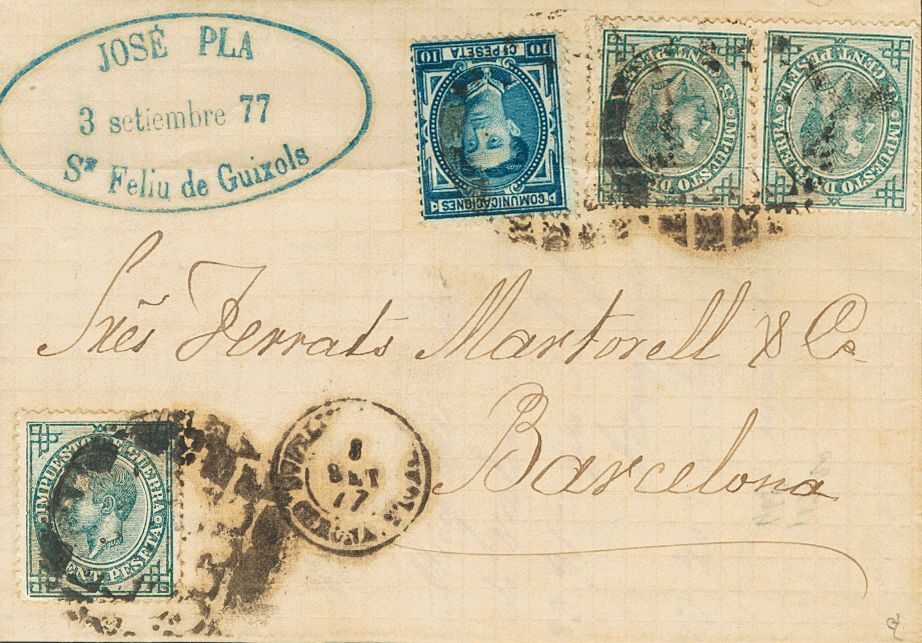 JOSÉ PLA
3 setiembre 77
Sn Feliu de Guixols
10 CS PESETA 10
COMUNICACIONES
IMPUESTO DE GUERRA
5 CENT PESETA
IMPUESTO DE GUERRA
5 CENT PESETA
Sres Ferrats Martorell & Co
Barcelona
IMPUESTO DE GUERRA
CENT PESETA
8
SET
77
GERONA